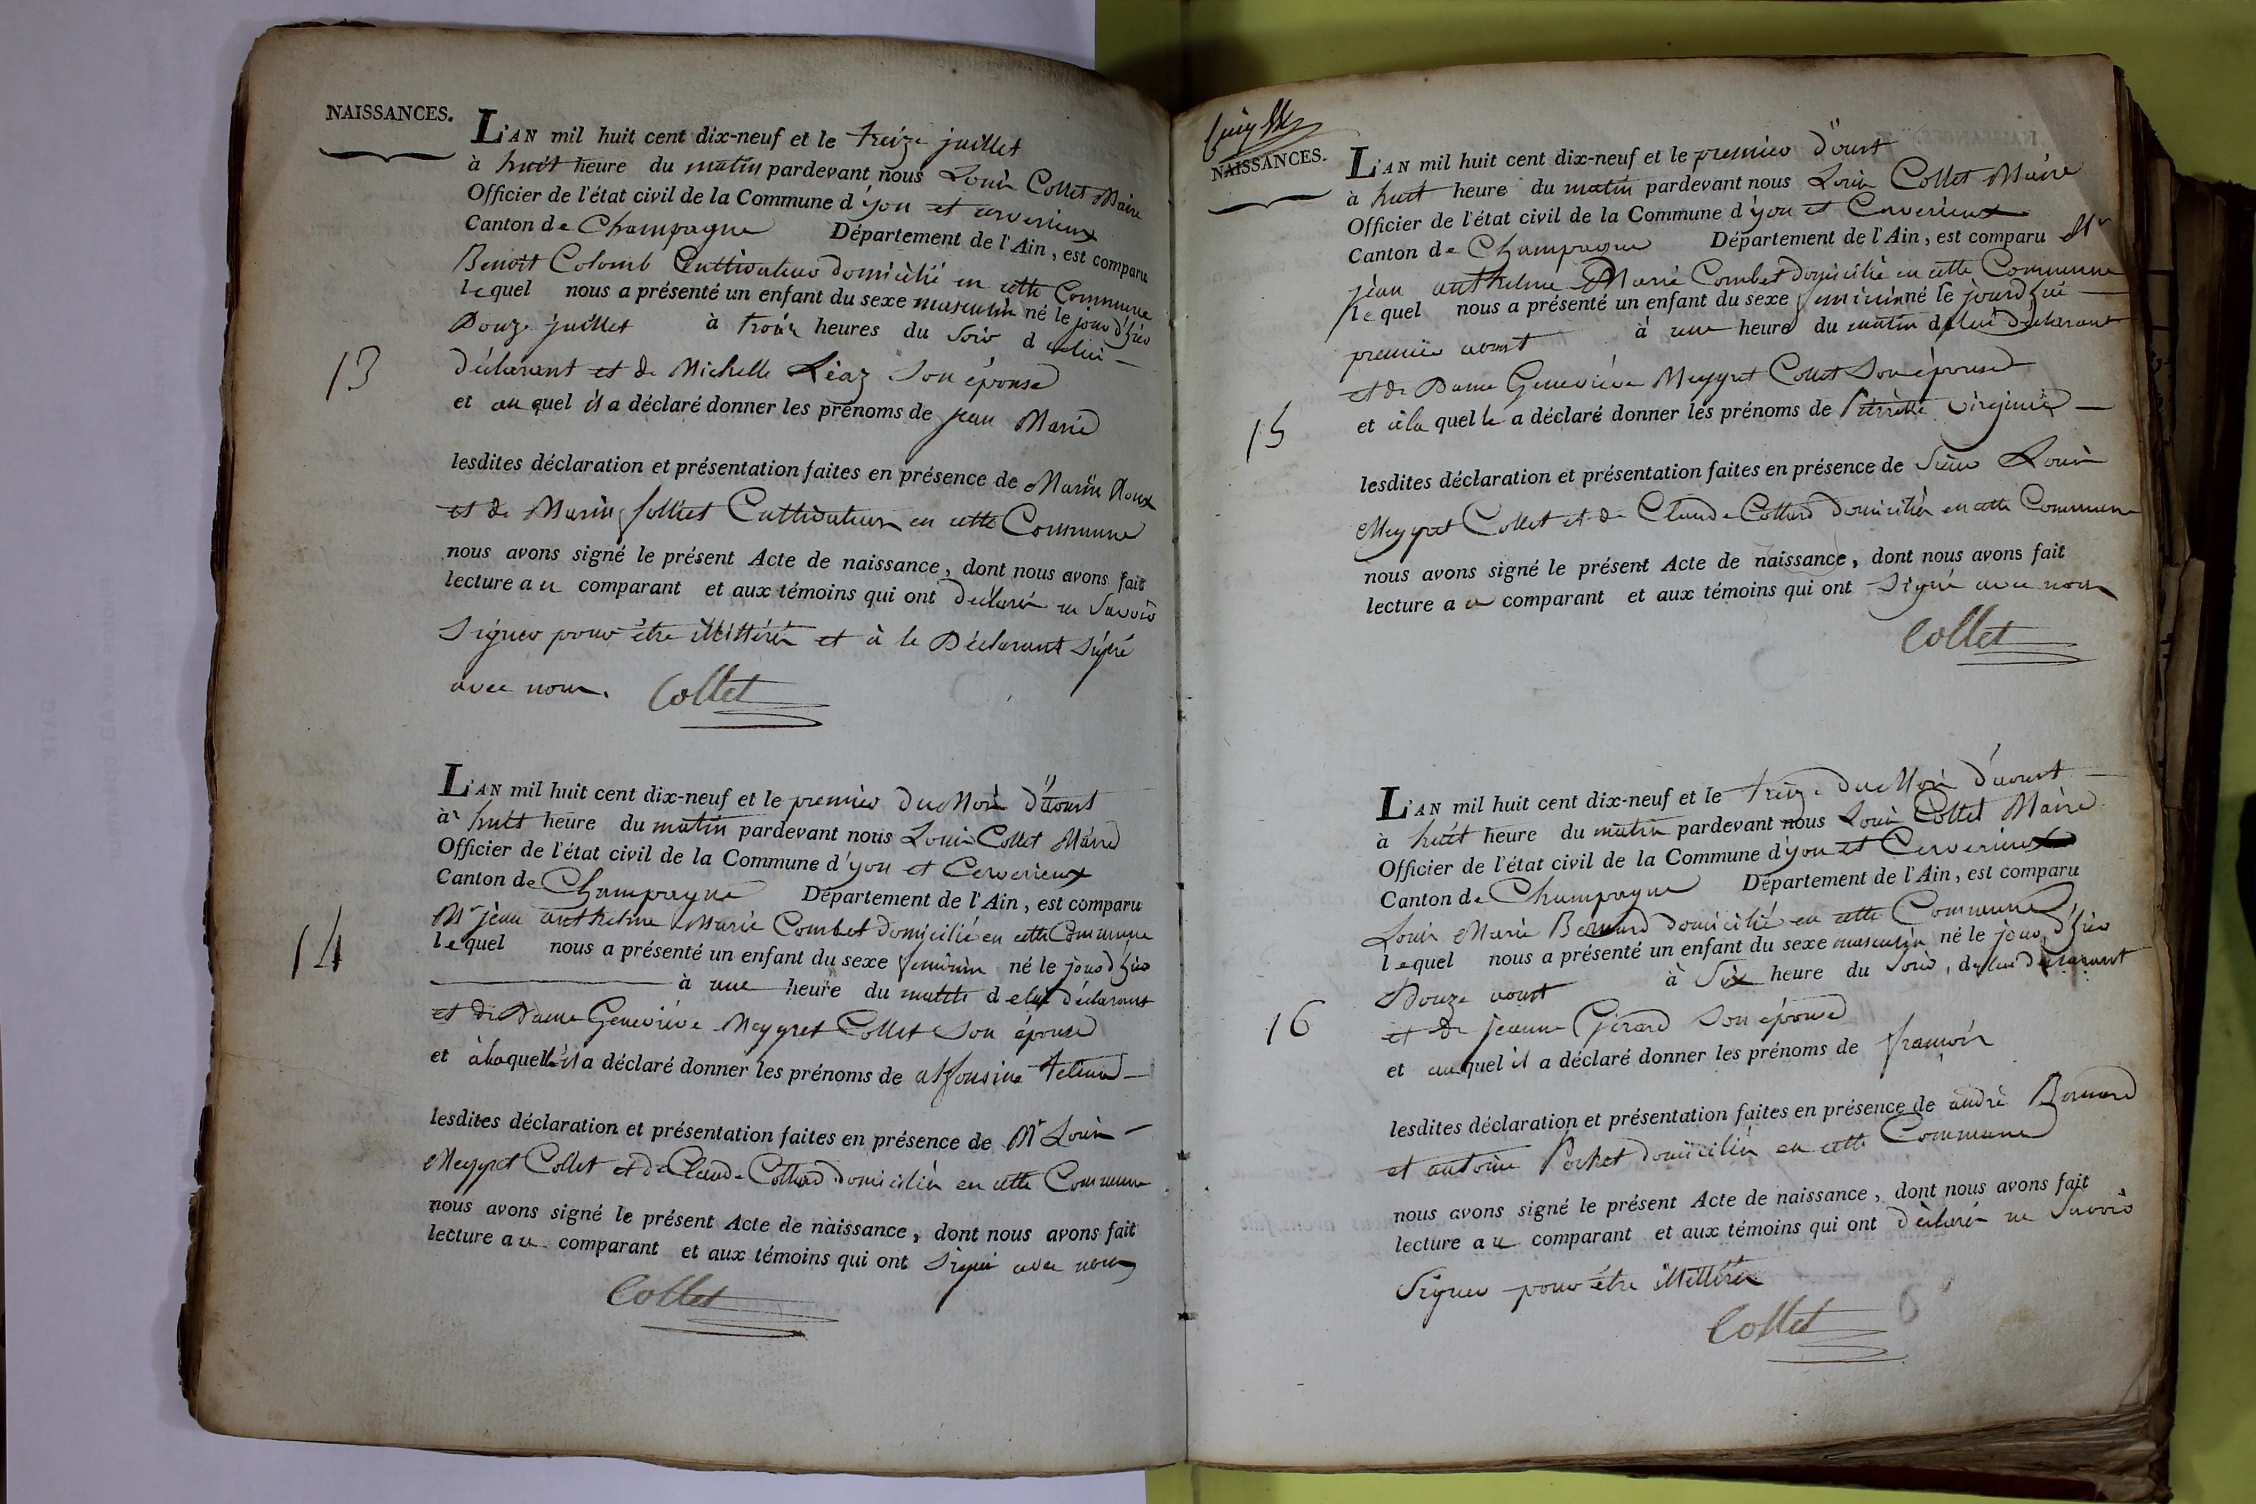 NAISSANCES.
L'AN mil huit cent dix-neuf et le treize juillet
à huit heure du matin pardevant nous Louis Collet Maire
Officier de l'état civil de la Commune d'yon et cerverieux
Canton de Champagne Département de l'Ain, est comparu
Benoit Colomb Cultivateur domicilié en cette Commune
lequel nous a présenté un enfant du sexe masculin né le jour d'hier
Douze juillet à trois heures du soir d celui
13
déclarant et de Michelle Léaz son épouse
et au quel il a déclaré donner les prénoms de jean Marie
lesdites déclaration et présentation faites en présence de Marin Roux
et de Marin folliet Cultivateurs en cette Commune
nous avons signé le présent Acte de naissance, dont nous avons fait
lecture au comparant et aux témoins qui ont déclaré ne Savoir
Signer pour être illittérés et à le Déclarant signé
avec nous. Collet
L'AN mil huit cent dix-neuf et le premier du Mois d'aoust
à huit heure du matin pardevant nous Louis Collet Maire
Officier de l'état civil de la Commune d'yon et Cerverieux
Canton de Champagne Département de l'Ain, est comparu
Mr jean anthelme Marie Combet domicilié en cette Commune
14
lequel nous a présenté un enfant du sexe feminin né le jour d'hier
à une heure du matin d elui déclarant
et de Dame Geneviève Meygret Collet son épouse
et à laquelle il a déclaré donner les prénoms de
lesdites déclaration et présentation faites en présence de Mr Louis
Meygret Collet et de Claude Collard domiciliés en cette Commune
nous avons signé le présent Acte de naissance, dont nous avons fait
lecture au comparant et aux témoins qui ont signé avec nous
Collet
NAISSANCES.
L'AN mil huit cent dix-neuf et le premier d'oust
à huit heure du matin pardevant nous Louis Collet Maire
Officier de l'état civil de la Commune d'yon et Cerverieux
Canton de Champagne Département de l'Ain, est comparu Mr
jean anthelme Marie Combet domicilié en cette Commune
lequel nous a présenté un enfant du sexe feminin né le jourd'hui
premier aoust à une heure du matin de lui déclarant
et de Dame Geneviève Meygret Collet Son épouse
15
et à la quelle a déclaré donner les prénoms de Pierrette virginie
lesdites déclaration et présentation faites en présence de Sieur Louis
Meygret Collet et de Claude Collard domiciliés en cette Commune
nous avons signé le présent Acte de naissance, dont nous avons fait
lecture au comparant et aux témoins qui ont signé avec nous
Collet
L'AN mil huit cent dix-neuf et le treize du Mois d'aoust
à huit heure du matin pardevant nous Louis Collet Maire
Officier de l'état civil de la Commune d'yon et Cerverieux
Canton de Champagne Département de l'Ain, est comparu
Louis Marie Bernard domicilié en cette Commune
lequel nous a présenté un enfant du sexe masculin né le jour d'hier
Douze aoust à Six heure du soir, de lui déclarant
16
et de jeanne Girard son épouse
et auquel il a déclaré donner les prénoms de françois
lesdites déclaration et présentation faites en présence de andré Bernard
et antoine Pochet domiciliés en cette Commune
nous avons signé le présent Acte de naissance, dont nous avons fait
lecture au comparant et aux témoins qui ont déclaré ne Savoir
Signer pour être illittérés
Collet